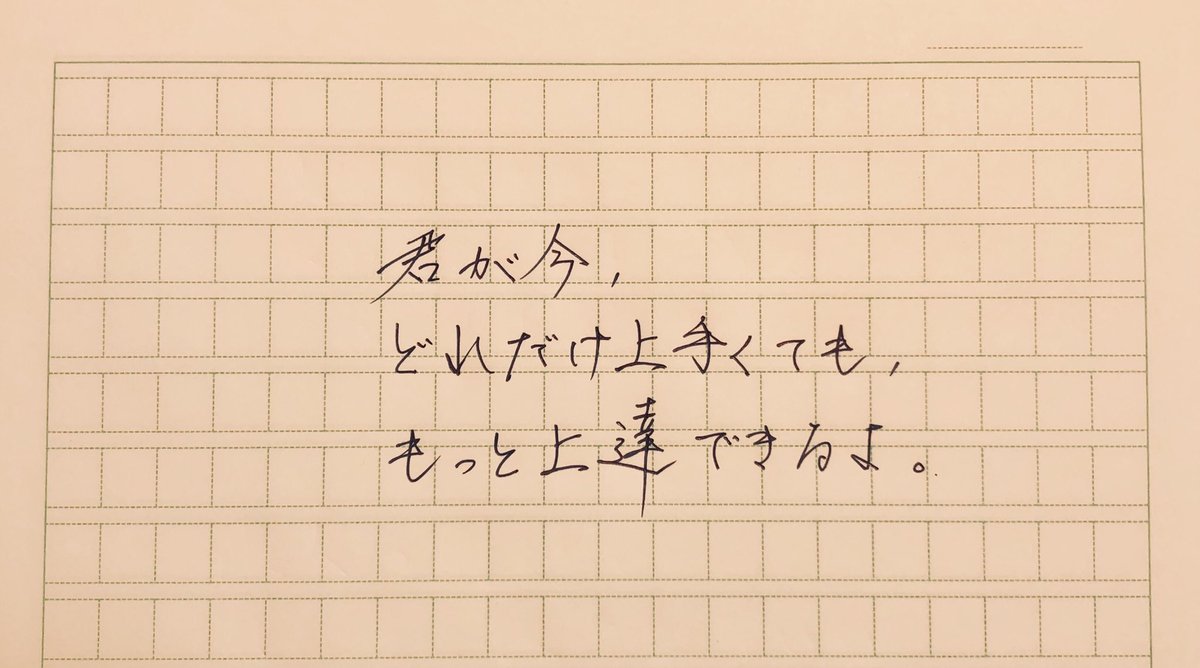 君が今,
どれだけ上手くても,
もっと上達できるよ。